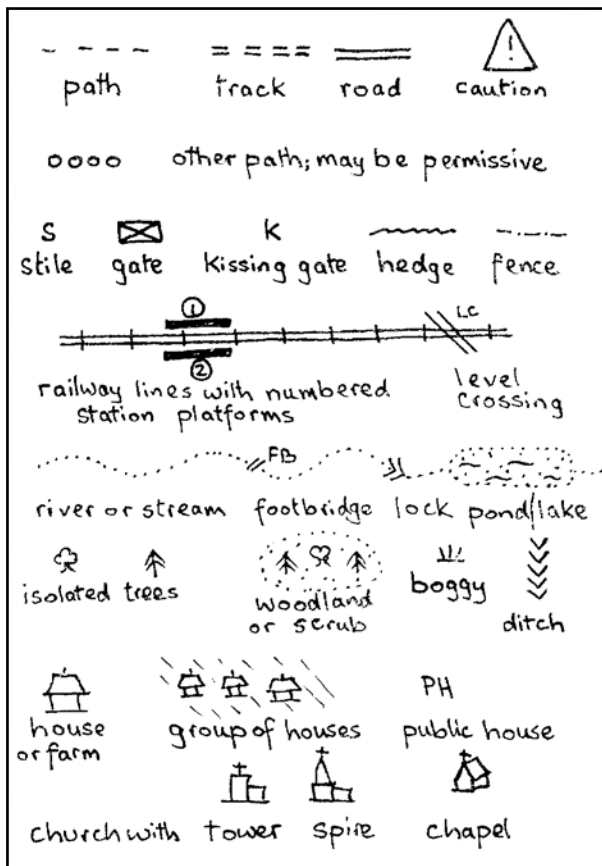 !
path track road caution
other path; may be permissive
S K
stile gate kissing gate hedge fence
1 LC
2
railway lines with numbered level
station platforms crossing
FB
river or stream footbridge lock pond/lake
isolated trees woodland boggy
or scrub ditch
PH
house group of houses public house
or farm
church with tower spire chapel